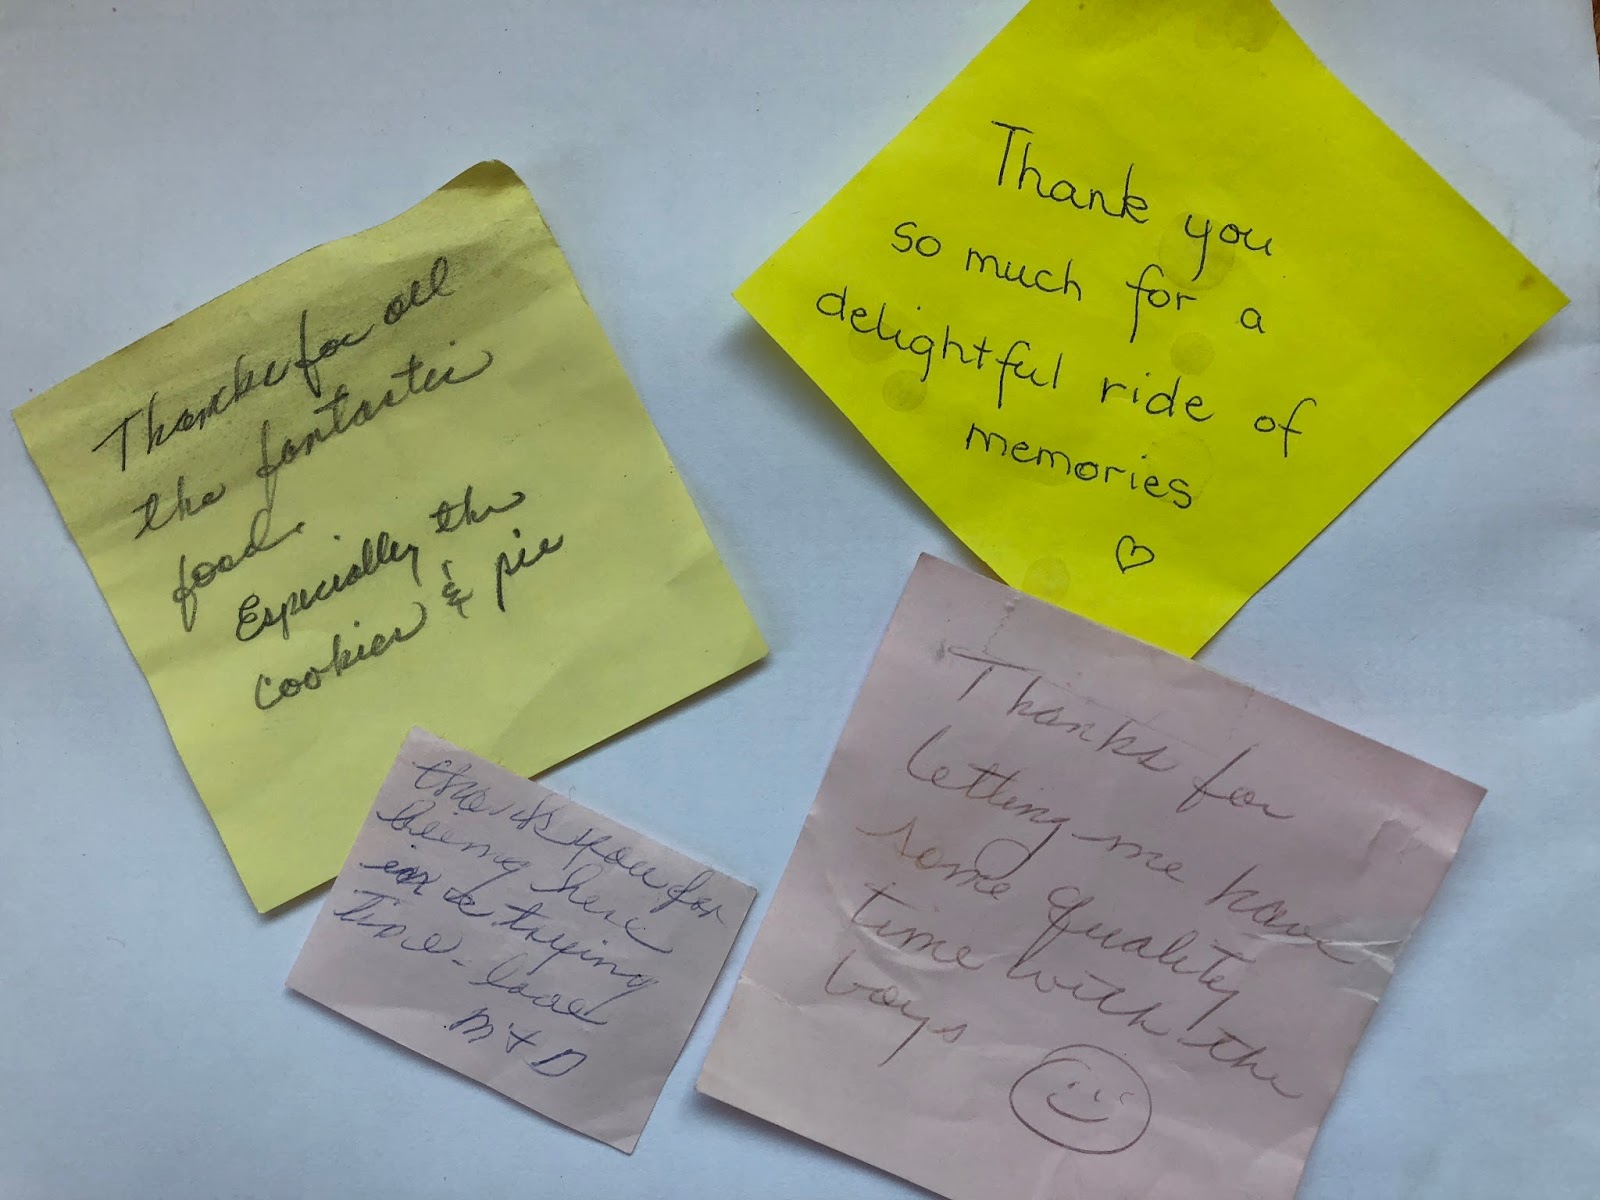 Thanks for all
the fantastic
food.
Especially the
cookies & pie
Thank you
so much for a
delightful ride of
memories
♡
thank you for
being here
in a trying
time - love
M + D
Thanks for
letting me have
some quality
time with the
boys